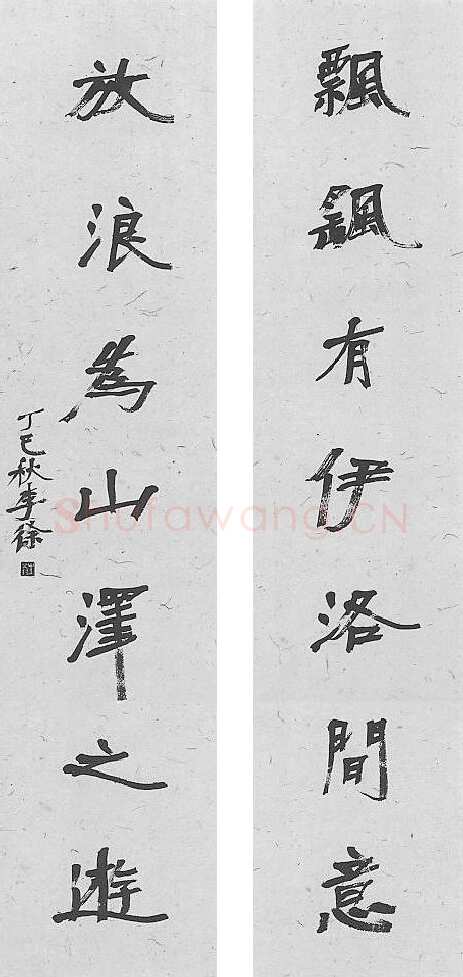 飄颻有伊洛間意
放浪為山澤之遊
丁巳秋李徐
Shufawang.CN